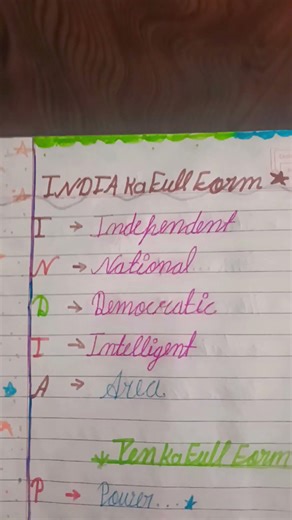 INDIA ka Full Form
I → Independent
N → National
D → Democratic
I → Intelligent
A → Area
Pen ka Full Form
P → Power...